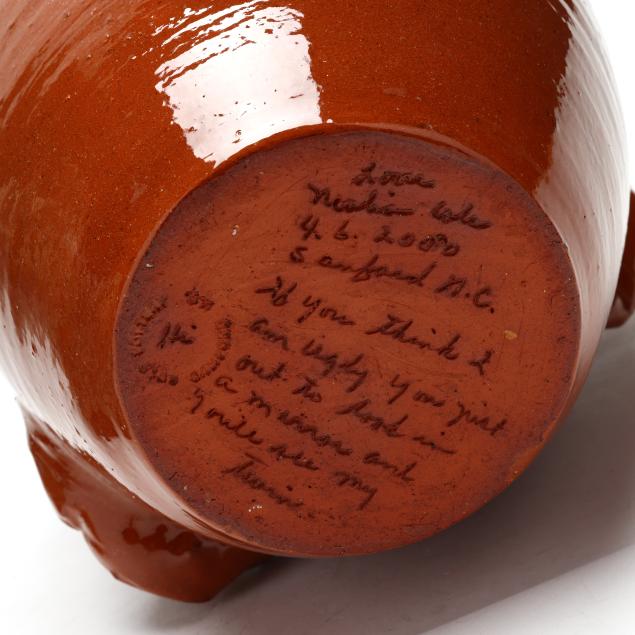 Love
Neolia Cole
4. 6. 2000
Sanford N.C.
Hi
If you think I
am ugly you just
out to look in
a mirror and
you'll see my
Twin